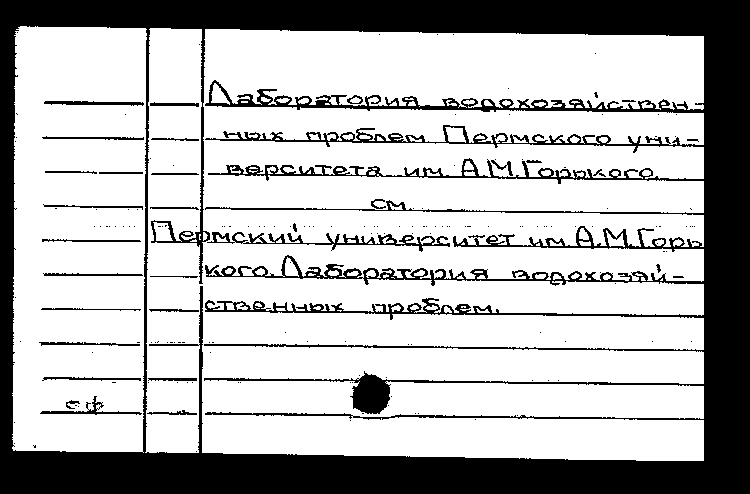 Лаборатория водохозяйствен-
ных проблем Пермского уни-
верситета им. А.М.Горького
см.
Пермский университет им. А.М.Горь
кого. Лаборатория водохозяй-
ственных проблем.
еф